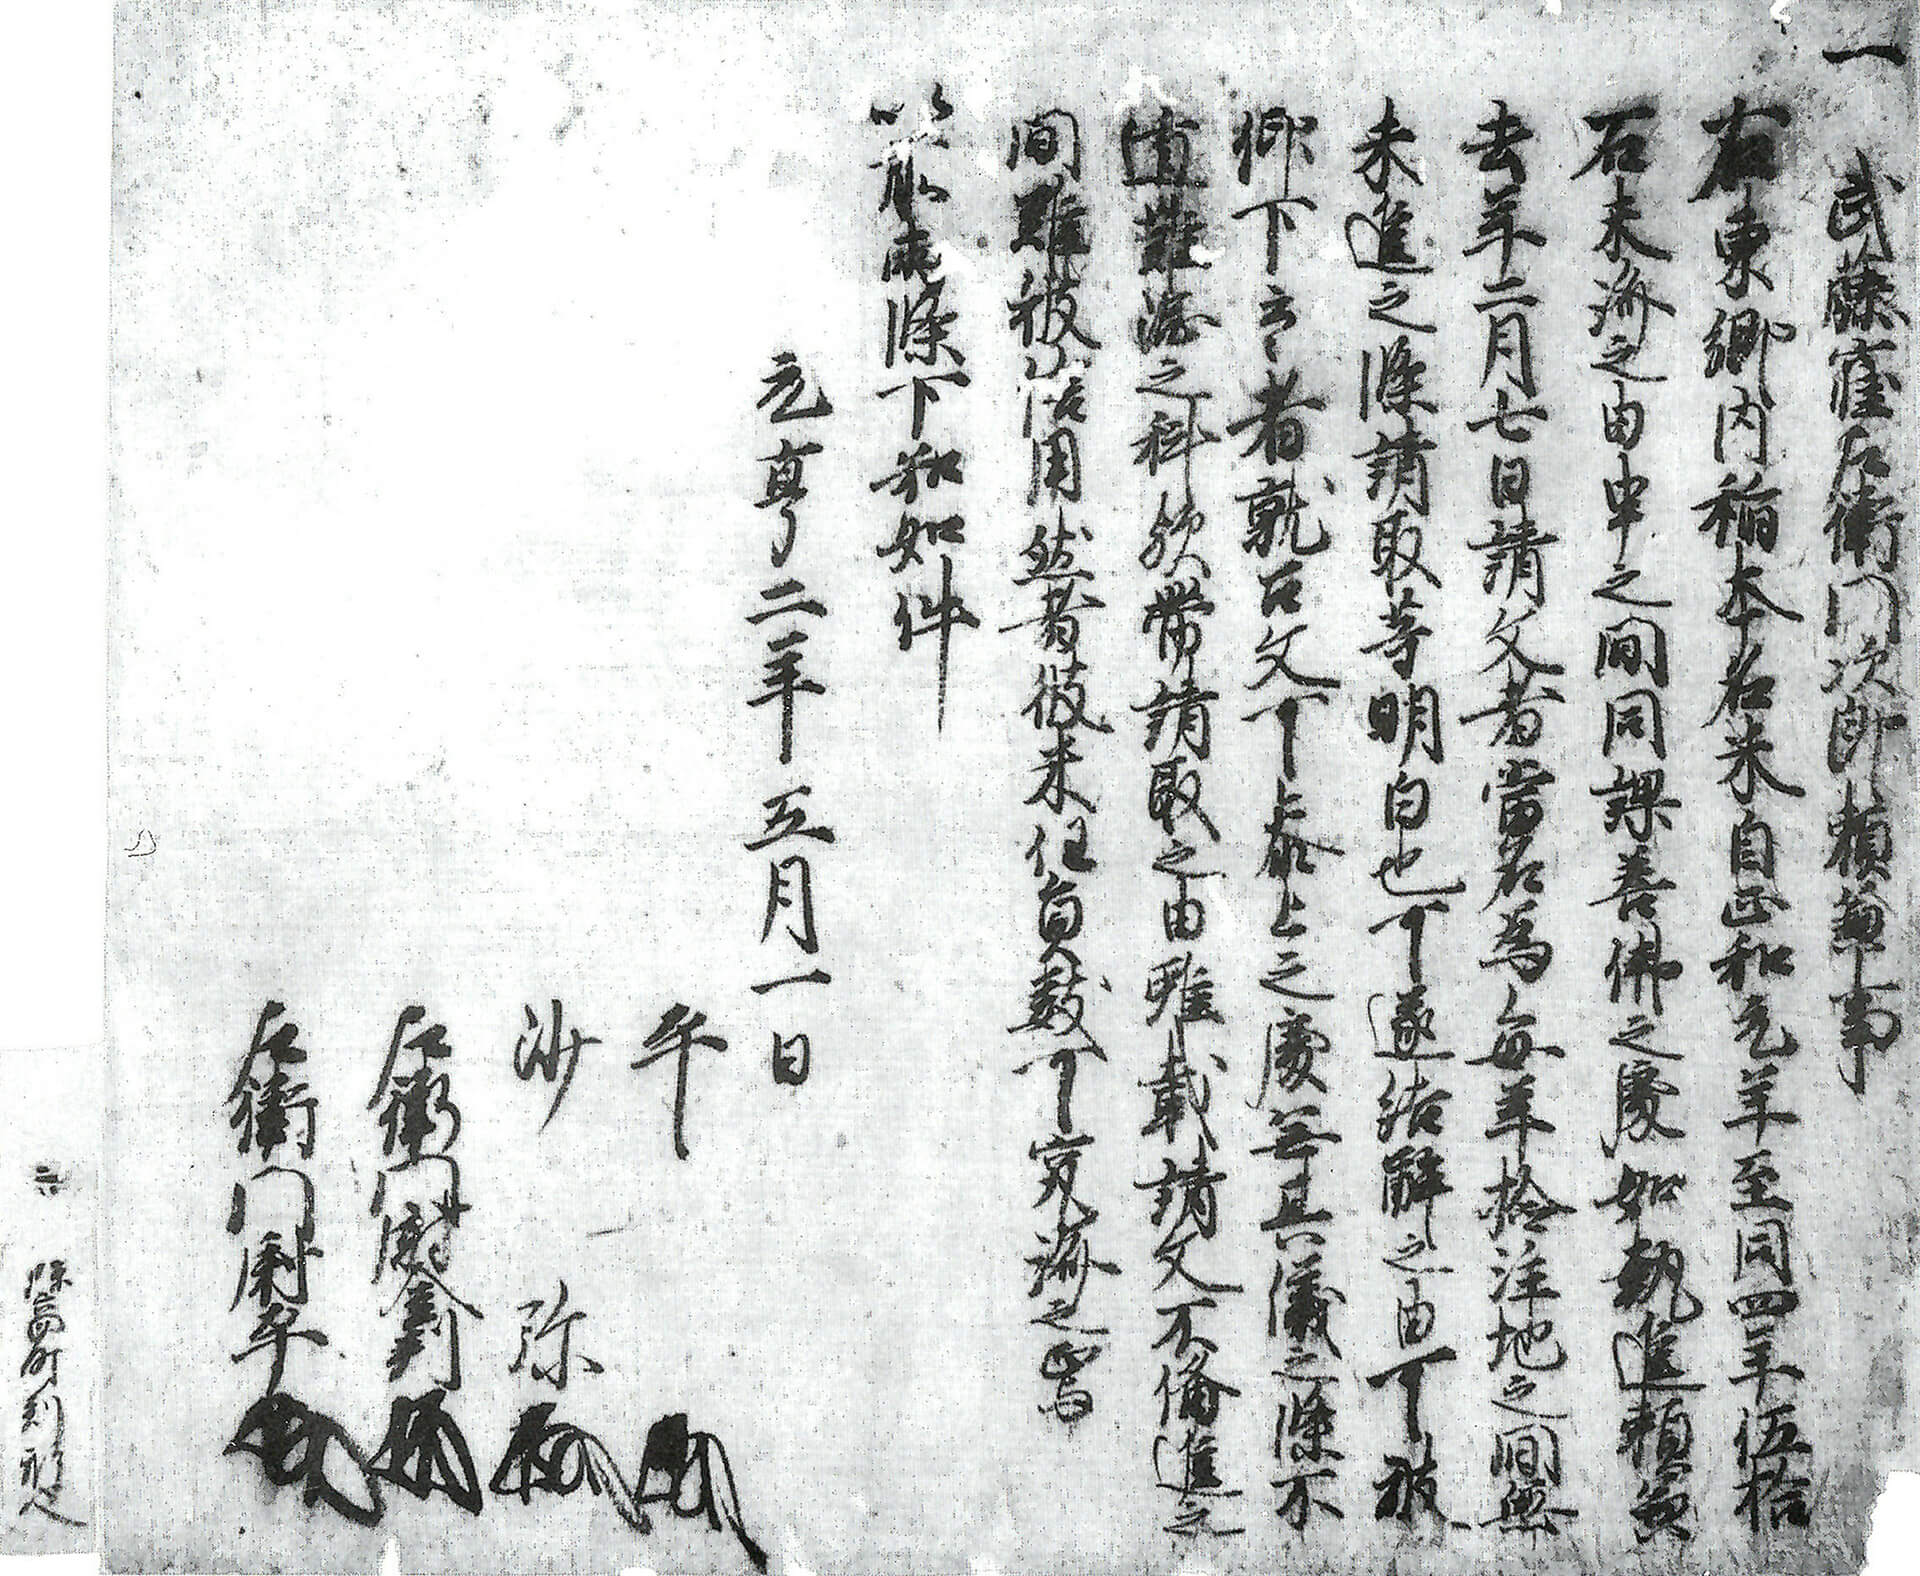 一
武藤窪左衛門次郎頼兼事
右東郷内稲本名米自正和元年至同四年伍拾
石未済之由申之間同課善佛之處如執進頼兼
去年二月七日請文者當名為毎年拾注地之間無
未進之條請取等明白也可遂結解之由可被
仰下云々者就召文可上参上之處無其儀之條不
遁難渋之科欤帯請取之由雖載請文不備進之
間雖被信用然者彼米任員数可究済之焉
以前両條下知如件
元亨二年五月一日
平
沙弥
左衛門尉
左衛門尉平